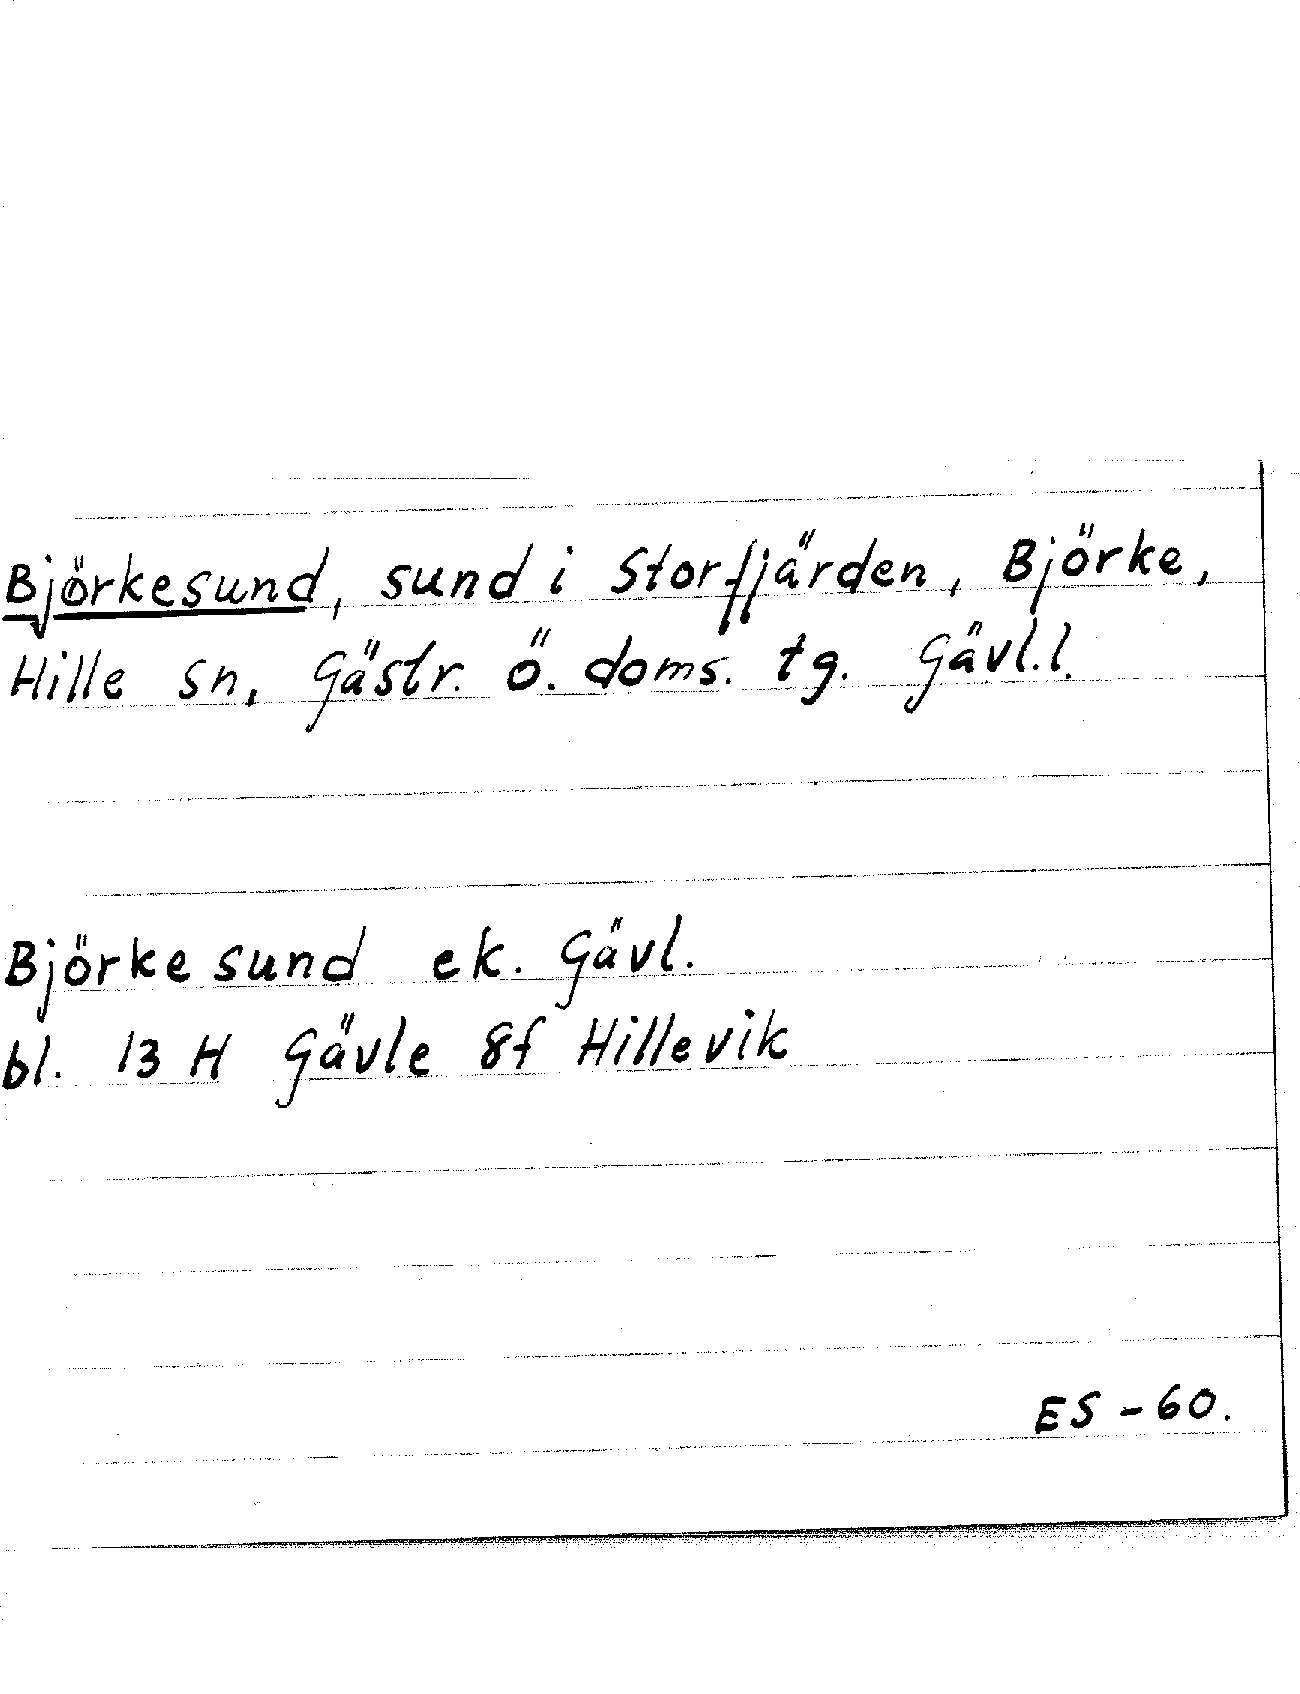 Björkesund, sund i Storfjärden, Björke,
Hille sn, Gästr. ö. doms. tg. Gävl.l.
Björkesund ek. Gävl.
bl. 13 H Gävle 8f Hillevik
ES -60.